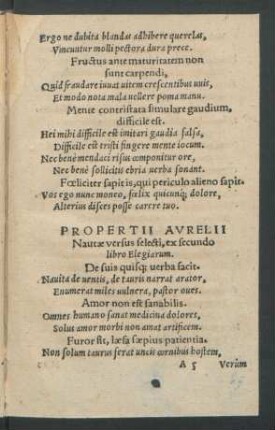 Ergo ne dubita blandas adhibere querelas,
Vincuntur molli pectora dura prece.
Fructus ante maturitatem non
sunt carpendi,
Quid fraudare iuuat uitem crescentibus uuis,
Et modo nota mala uellere poma manu.
Mente contristata simulare gaudium,
difficile est.
Hei mihi difficile est imitari gaudia falsa,
Difficile est tristi fingere mente iocum.
Nec bene mendaci risus componitur ore,
Nec bene sollicitis ebria uerba sonant.
Fœliciter sapitis, qui periculo alieno sapit.
Vos ego nunc moneo, fœlix quicunq; dolore,
Alterius disces posse carere tuo.
PROPERTII AVRELII
Nautæ versus selecti, ex secundo
libro Elegiarum.
De suis quisq; uerba facit.
Nauita de uentis, de tauris narrat arator,
Enumerat miles uulnera, pastor oues.
Amor non est sanabilis.
Omnes humano sanat medicina dolores,
Solus amor morbi non amat artificem.
Furor fit, læsa sæpius patientia.
Non solum taurus ferit uncis cornibus hostem,
A 5 Verùm